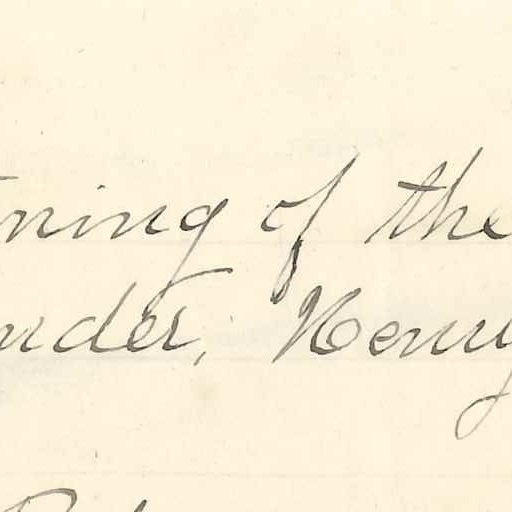 ning of the
nder, Henry